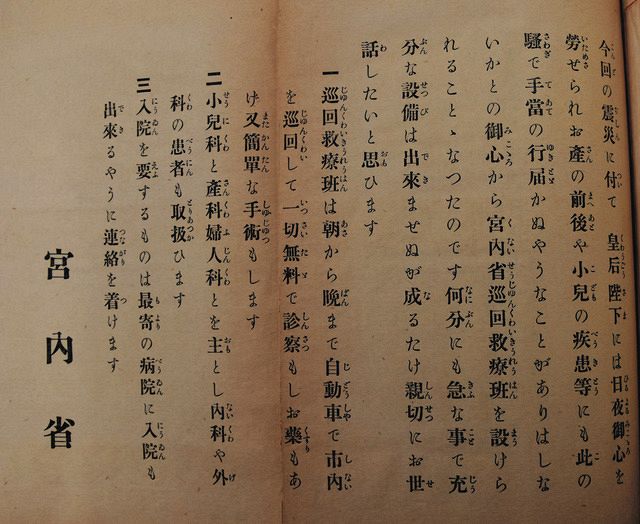 今回の震災に付て 皇后陛下には日夜御心を
勞せられお產の前後や小兒の疾患等にも此の
騷で手當の行届かぬやうなことがありはしな
いかとの御心から宮內省巡回救療班を設けら
れることゝなつたのです何分にも急な事で充
分な設備は出來ませぬが成るたけ親切にお世
話したいと思ひます
一 巡回救療班は朝から晚まで自動車で市內
を巡回して一切無料で診察もしお藥もあ
け又簡單な手術もします
二 小兒科と產科婦人科とを主とし內科や外
科の患者も取扱ひます
三 入院を要するものは最寄の病院に入院も
出來るやうに連絡を着けます
宮內省